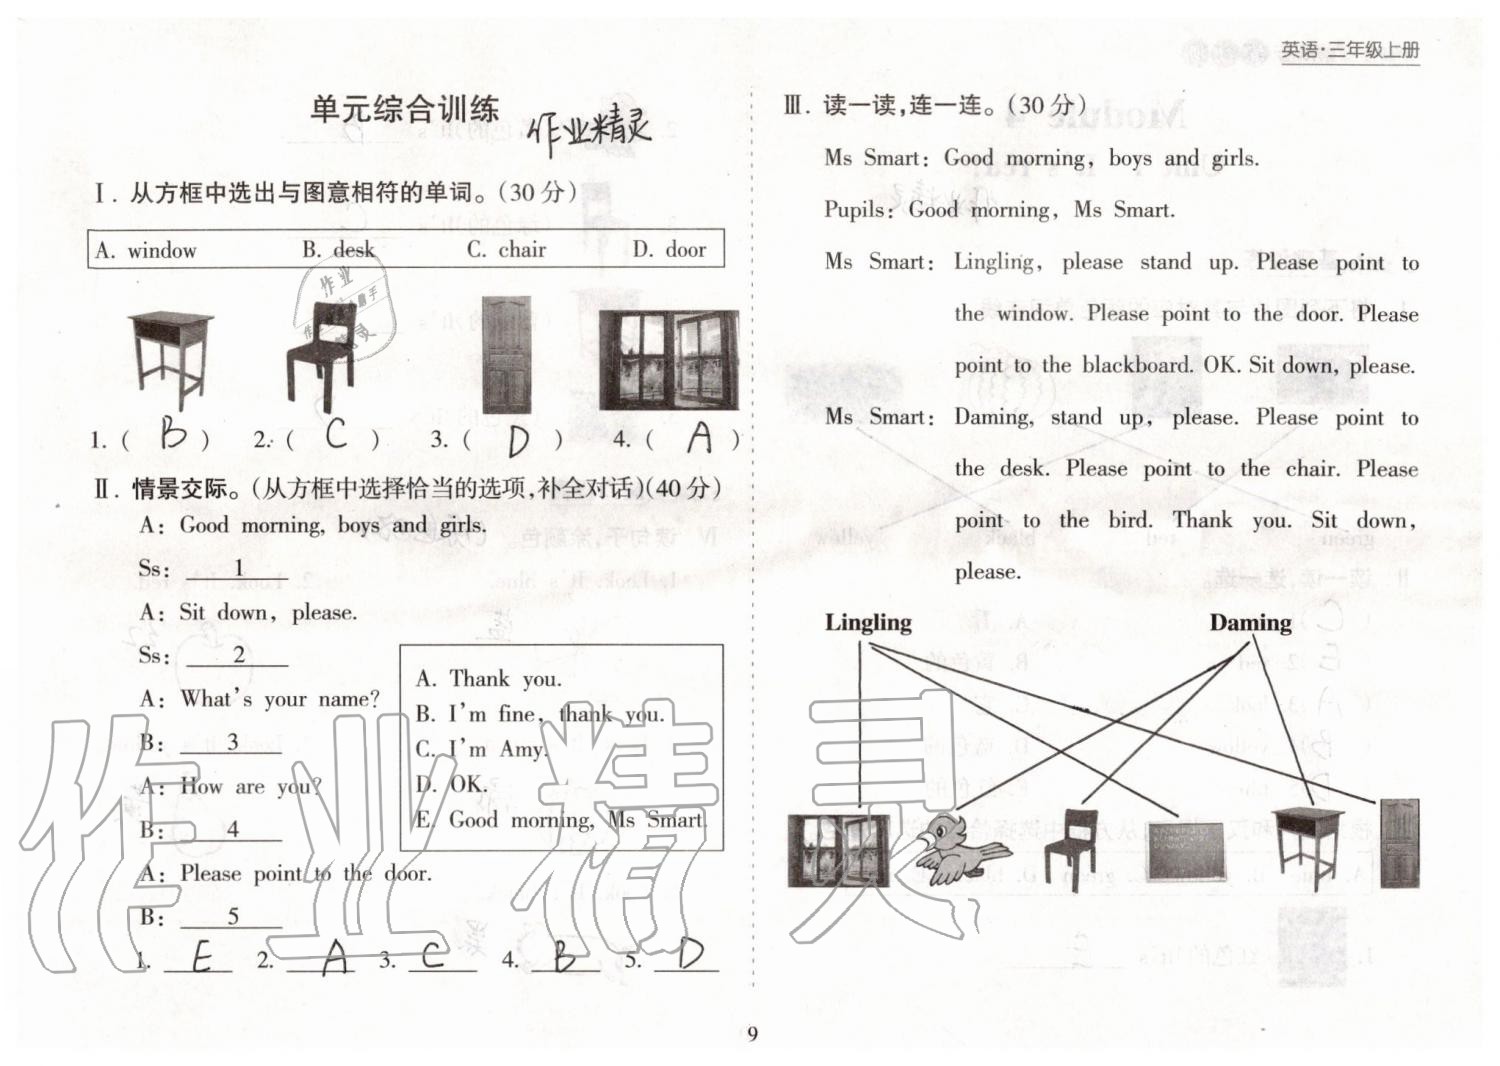 英语·三年级上册
单元综合训练
作业精灵
Ⅰ. 从方框中选出与图意相符的单词。(30分)
A. window B. desk C. chair D. door
1. ( B ) 2. ( C ) 3. ( D ) 4. ( A )
Ⅱ. 情景交际。(从方框中选择恰当的选项,补全对话)(40分)
A: Good morning, boys and girls.
Ss: 1
A: Sit down, please.
Ss: 2
A: What's your name?
B: 3
A: How are you?
B: 4
A: Please point to the door.
B: 5
A. Thank you.
B. I'm fine, thank you.
C. I'm Amy.
D. OK.
E. Good morning, Ms Smart.
1. E 2. A 3. C 4. B 5. D
Ⅲ. 读一读,连一连。(30分)
Ms Smart: Good morning, boys and girls.
Pupils: Good morning, Ms Smart.
Ms Smart: Lingling, please stand up. Please point to
the window. Please point to the door. Please
point to the blackboard. OK. Sit down, please.
Ms Smart: Daming, stand up, please. Please point to
the desk. Please point to the chair. Please
point to the bird. Thank you. Sit down,
please.
Lingling Daming
作业精灵
9